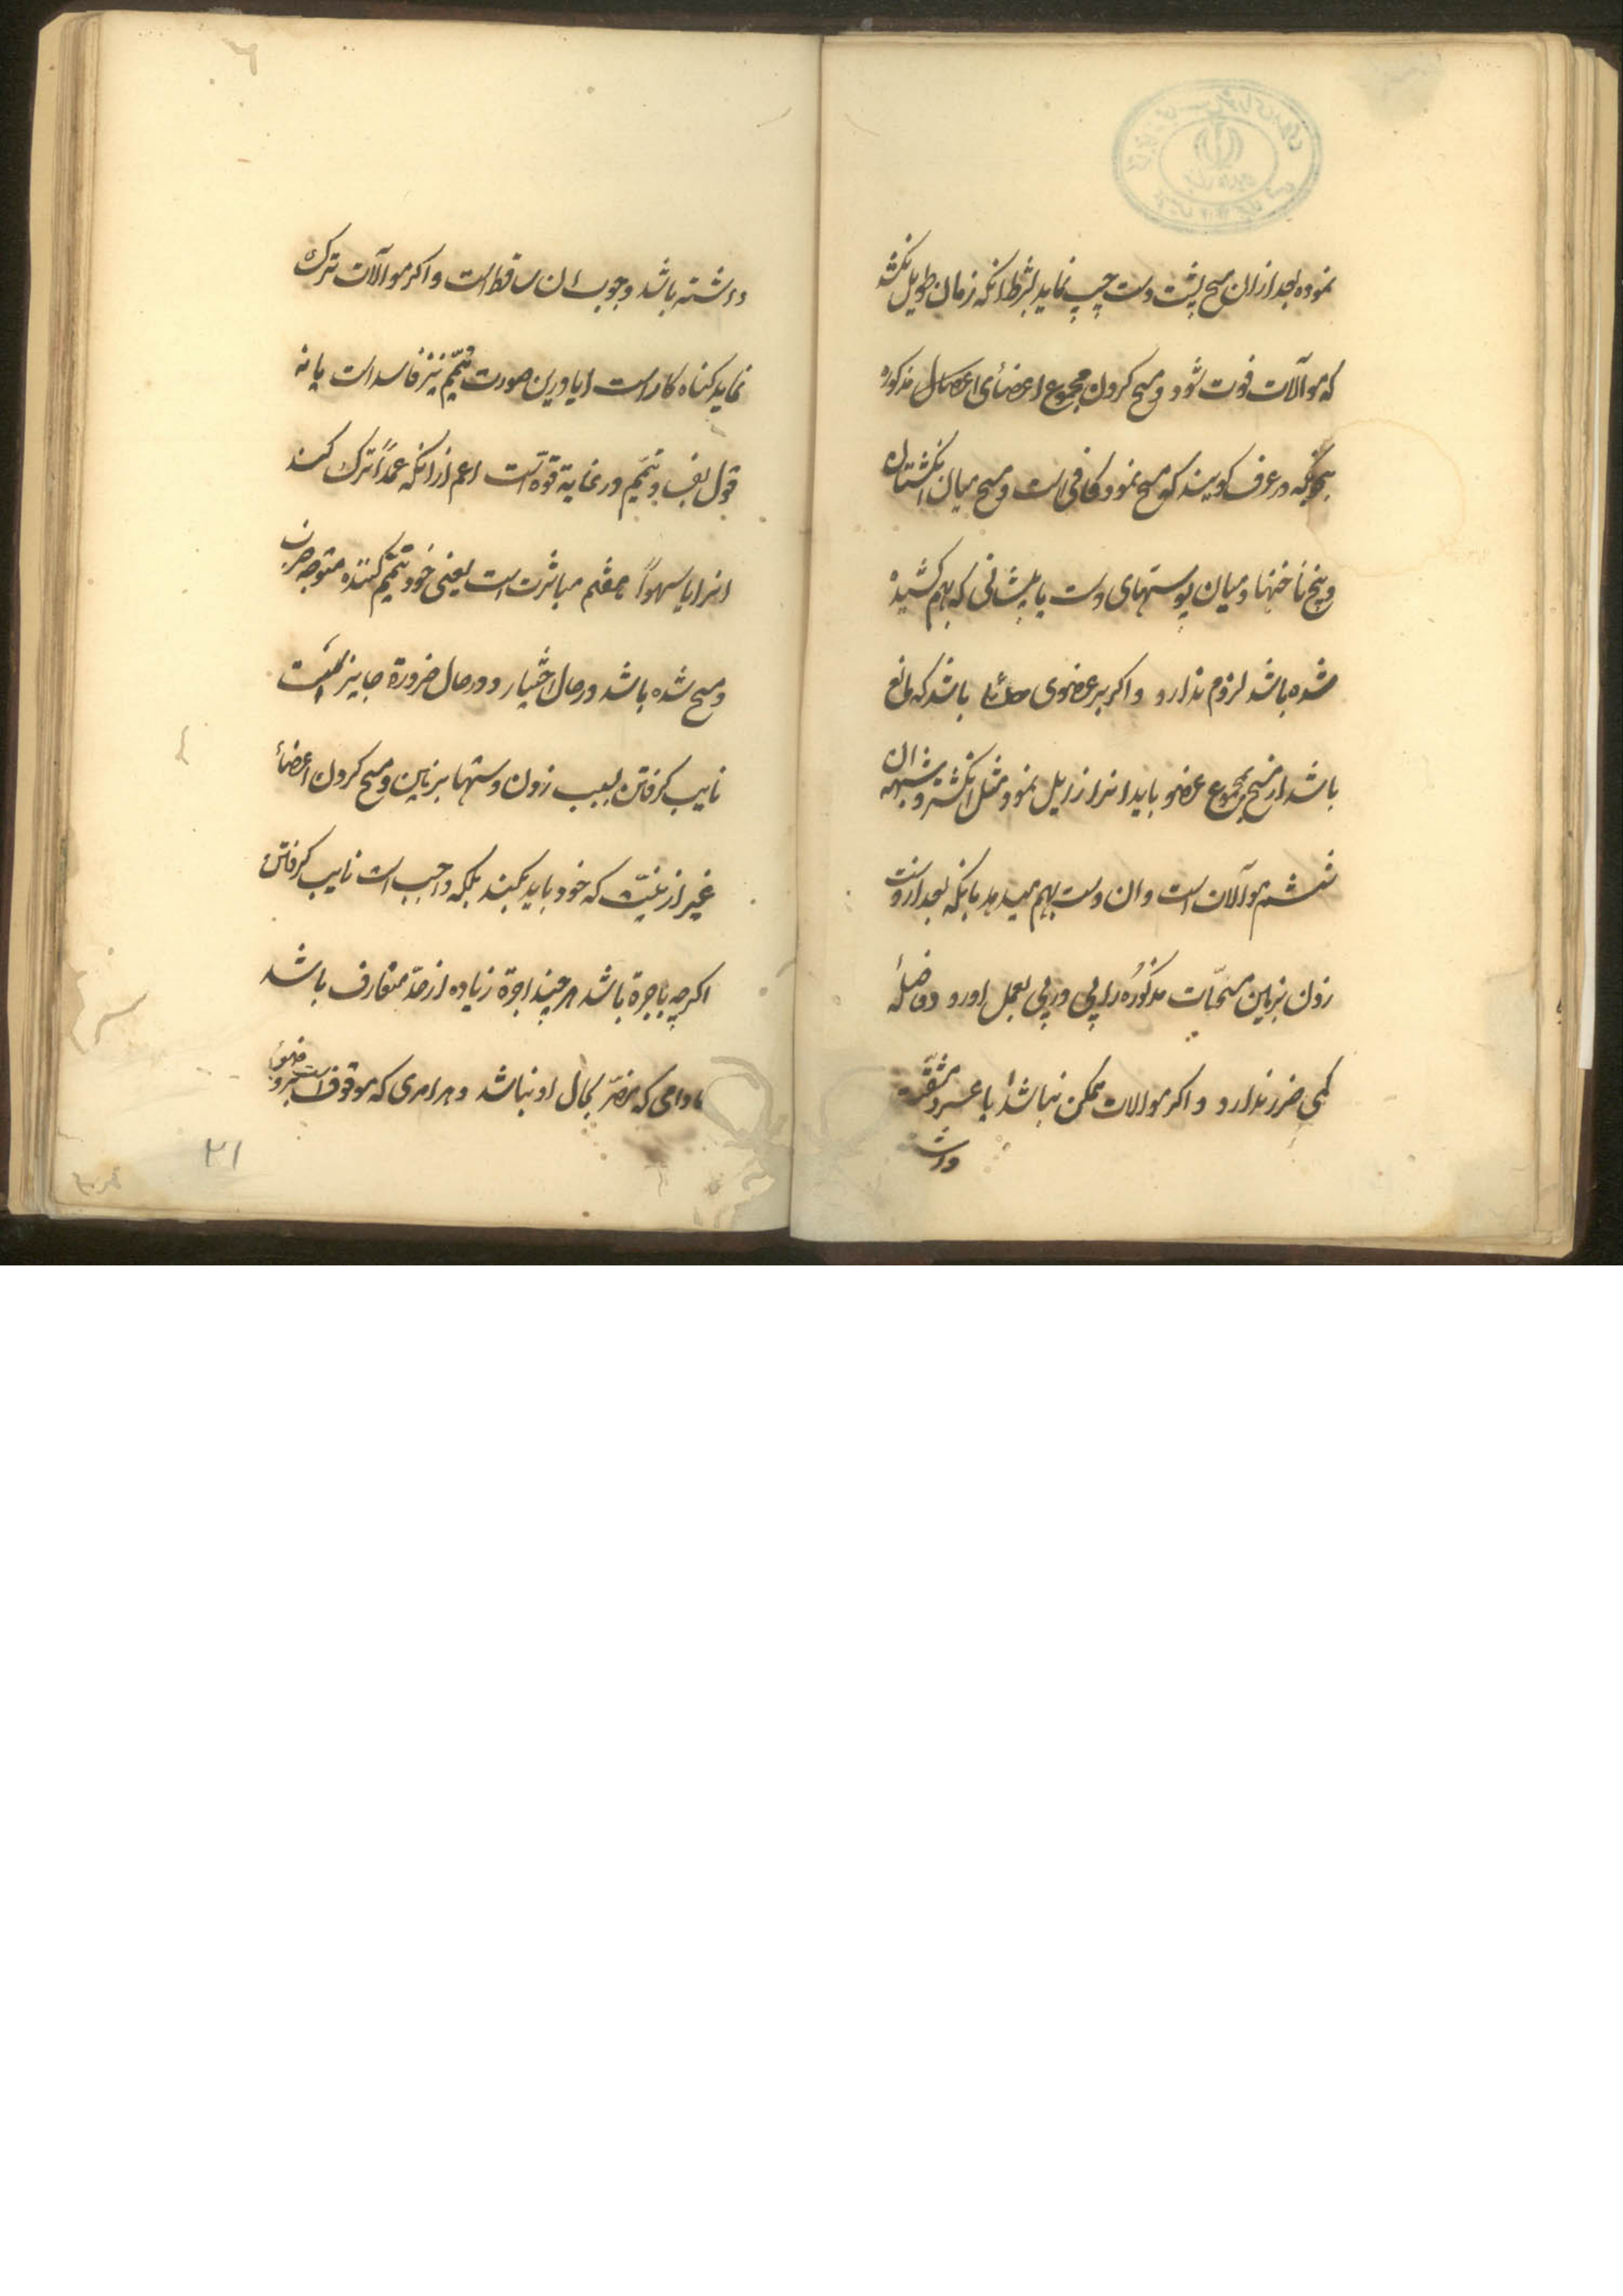 نموده بعد ازان مسح پشت دست چپ نماید بشرط انکه زمان طویل نکشد
که موآلات فوت شود و مسح کردن مجموع اعضای مذکوره
بنحویکه در عرف کویند که مسح نمود کافی است و مسح میان انکشتان
و بیخ ناخنها و میان پوستهای دست یا پیشانی که بهم کشیده
شده باشد لزوم ندارد و اکر بر عضوی حائلی باشد که مانع
باشد از مسح مجموع عضو باید انرا زایل نمود مثل انکشتر و شبه ان
ششم موآلات است و ان دست بهم میدهد بانکه بعد از دست
زدن بزمین مسحات مذکوره را پی در پی بعمل اورد و فاصلهٔ
کمی ضرر ندارد و اکر موالات ممکن نباشد یا عسر و مشقت
داشته
داشته باشد وجوب ان ساقط است و اکر موآلات ترک
نماید کناه کار است ایا درین صورت تیمّم نیز فاسد است یا نه
قول بفساد تیمّم در غایة قوة است اعم از انکه عمداً ترک کند
انرا یا سهواً هفتم مباشرت است یعنی خود تیمّم کننده متوجه ضرب
و مسح شده باشد در حال اختیار و در حال ضرورة جایز است
نایب کرفتن بسبب زدن دستها بزمین و مسح کردن اعضأ
غیر از نیّت که خود باید بکند بلکه واجب است نایب کرفتن
اکرچه باجرة باشد هر چند اجرة زیاده از حدّ متعارف باشد
مادامی که مضرّ بحال او نباشد و هر امری که موقوف است بر وضوء
۳۱